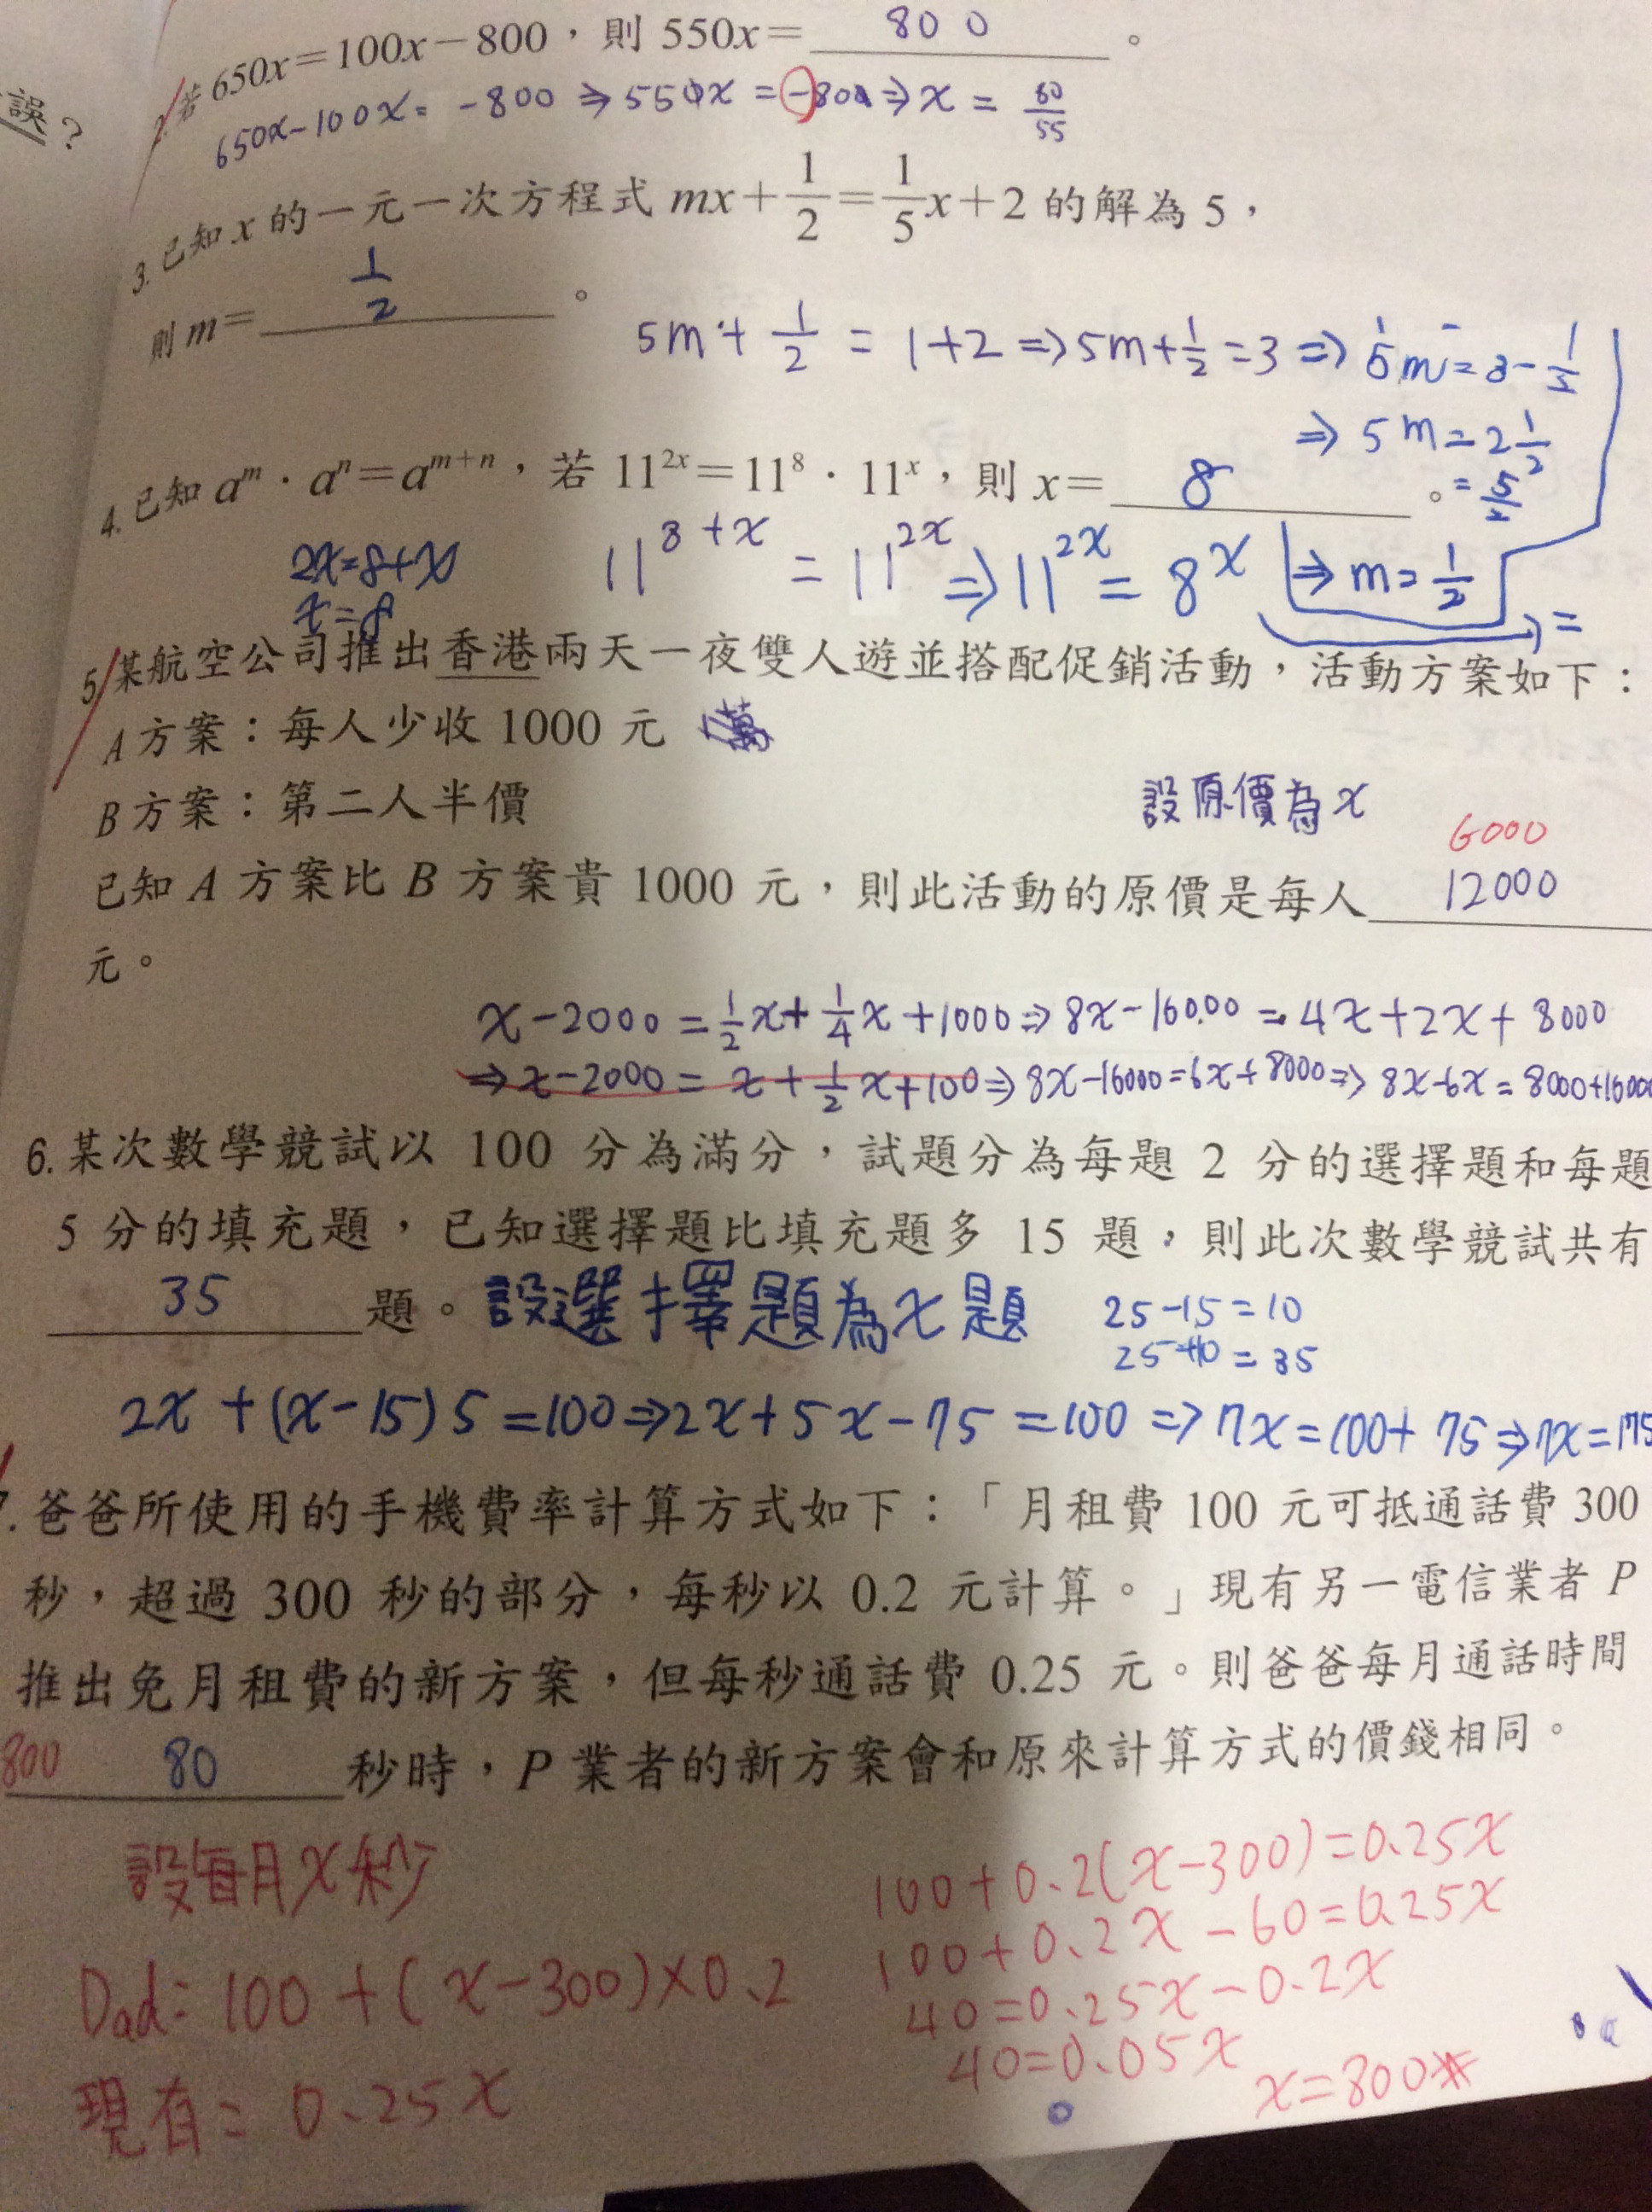 誤？
2.若650x=100x-800，則550x=80 0。
650x-100x=-800⇒550x=-800⇒x=60/55
3.已知x的一元一次方程式mx+1/2=1/5x+2的解為5，
則m=1/2。
5m+1/2=1+2⇒5m+1/2=3⇒5m=3-1/2
⇒5m=2 1/2
=5/2
⇒m=1/2
4.已知a^m·a^n=a^(m+n)，若11^(2x)=11^8·11^x，則x=8。
2x=8+x
x=8
11^(8+x)=11^(2x)⇒11^(2x)=8^x
=
5.某航空公司推出香港兩天一夜雙人遊並搭配促銷活動，活動方案如下：
A方案：每人少收1000元
B方案：第二人半價
設原價為x
6000
已知A方案比B方案貴1000元，則此活動的原價是每人12000
元。
x-2000=1/2x+1/4x+1000⇒8x-16000=4x+2x+8000
⇒x-2000=x+1/2x+100⇒8x-16000=6x+8000⇒8x-6x=8000+1600
6.某次數學競試以100分為滿分，試題分為每題2分的選擇題和每題
5分的填充題，已知選擇題比填充題多15題，則此次數學競試共有
35題。設選擇題為x題
25-15=10
25+10=35
2x+(x-15)5=100⇒2x+5x-75=100⇒7x=100+75⇒7x=175
7.爸爸所使用的手機費率計算方式如下：「月租費100元可抵通話費300
秒，超過300秒的部分，每秒以0.2元計算。」現有另一電信業者P
推出免月租費的新方案，但每秒通話費0.25元。則爸爸每月通話時間
800 80秒時，P業者的新方案會和原來計算方式的價錢相同。
設每月x秒
Dad：100+(x-300)×0.2
現有=0.25x
100+0.2(x-300)=0.25x
100+0.2x-60=0.25x
40=0.25x-0.2x
40=0.05x
x=800